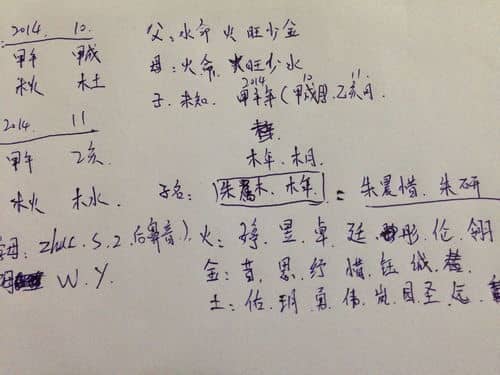 2014. 10.
甲午 甲戌
木火 木土
2014. 11
甲午 乙亥
木火 木水
父：水命 火旺少金
母：火命 火旺少水
子：未知 2014 甲午年（10 甲戌月）11 乙亥月
木年 木月
子名：朱属木、木年 = 朱晨惜、朱研
母：zhuc. S. Z. 后鼻音）
W. Y.
火： 昱 卓 廷 彤 伦 翎
金： 思 纾 惜 钰 诚
土：佑 玥 勇 伟 岚 圣